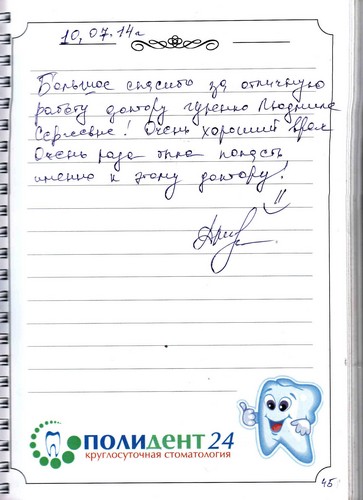 10.07.14г
Большое спасибо за отличную
работу доктору Гуренко Людмиле
Сергеевне! Очень хороший врач
Очень рада была попасть
именно к этому доктору!
ПОЛИДЕНТ 24
круглосуточная стоматология
45